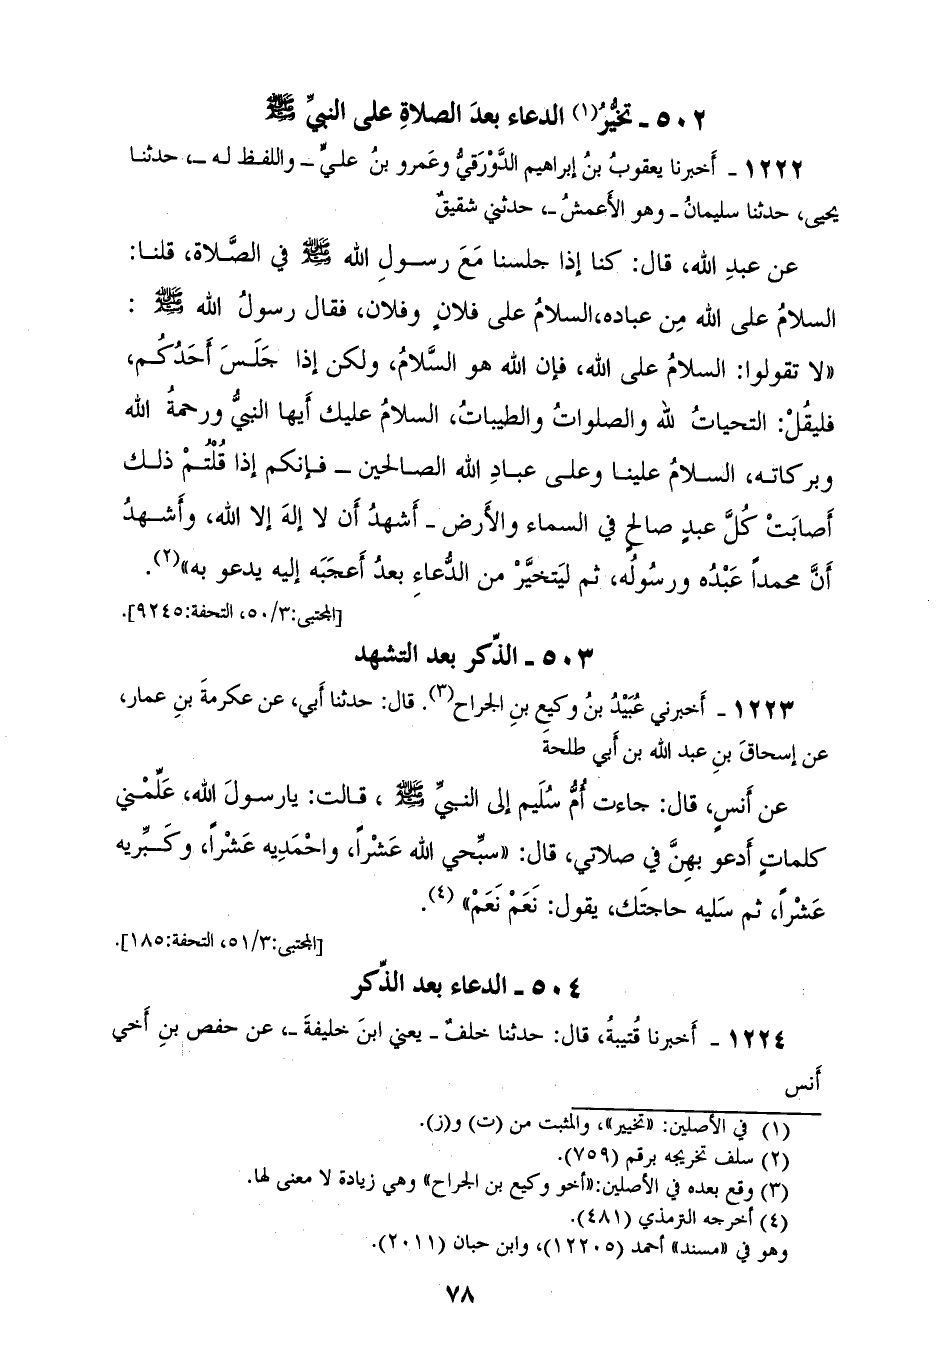 ٥٠٢ ـ تخيُّرُ(١) الدعاء بعدَ الصلاةِ على النبيِّ ﷺ
١٢٢٢ ـ أخبرنا يعقوبُ بنُ إبراهيم الدَّوْرَقيُّ وعَمرو بنُ عليٍّ ـ واللفظ له ـ، حدثنا
يحيى، حدثنا سليمانُ ـ وهو الأعمشُ ـ، حدثني شقيقٌ
عن عبدِ الله، قال: كنا إذا جلسنا مَعَ رسولِ الله ﷺ في الصَّلاة، قلنا:
السلامُ على الله مِن عباده،السلامُ على فلانٍ وفلان، فقال رسولُ الله ﷺ :
«لا تقولوا: السلامُ على الله، فإن الله هو السَّلامُ، ولكن إذا جَلَسَ أَحَدُكُم،
فليقُلْ: التحياتُ لله والصلواتُ والطيباتُ، السلامُ عليك أيها النبيُّ ورحمةُ الله
وبركاته، السلامُ علينا وعلى عبادِ الله الصالحين ـ فإنكم إذا قُلْتُمْ ذلك
أصابَتْ كُلَّ عبدٍ صالحٍ في السماء والأرض ـ أشهدُ أن لا إلهَ إلا الله، وأشهدُ
أنَّ محمداً عَبْدُه ورسُولُه، ثم ليَتخيَّرْ من الدُّعاءِ بعدُ أعجَبَه إليه يدعو به»(٢).
[المجتبى:٥٠/٣، التحفة:٩٢٤٥].
٥٠٣ ـ الذِّكر بعد التشهد
١٢٢٣ ـ أخبرني عُبَيْدُ بنُ وكيع بنِ الجراح(٣). قال: حدثنا أبي، عن عكرمةَ بنِ عمار،
عن إسحاقَ بنِ عبد الله بن أبي طلحةَ
عن أنسٍ، قال: جاءت أُمُّ سُلَيم إلى النبيِّ ﷺ ، قالت: يارسولَ الله، عَلِّمْني
كلماتٍ أدعو بهِنَّ في صلاتي، قال: «سبِّحي الله عَشْراً، واحْمَدِيه عَشْراً، وكَبِّريه
عَشْراً، ثم سَليه حاجتَك، يقول: نَعَمْ نَعَمْ» (٤).
[المجتبى:٥١/٣، التحفة:١٨٥].
٥٠٤ ـ الدعاء بعد الذِّكر
١٢٢٤ ـ أخبرنا قُتيبةُ، قال: حدثنا خلفٌ ـ يعني ابنَ خليفةَ ـ، عن حفص بنِ أخي
أنس
(١) في الأصلين: «تخيير»، والمثبت من (ت) و(ز).
(٢) سلف تخريجه برقم (٧٥٩).
(٣) وقع بعده في الأصلين:«أخو وكيع بن الجراح» وهي زيادة لا معنى لها.
(٤) أخرجه الترمذي (٤٨١).
وهو في «مسند» أحمد (١٢٢٠٥)، وابن حبان (٢٠١١).
٧٨